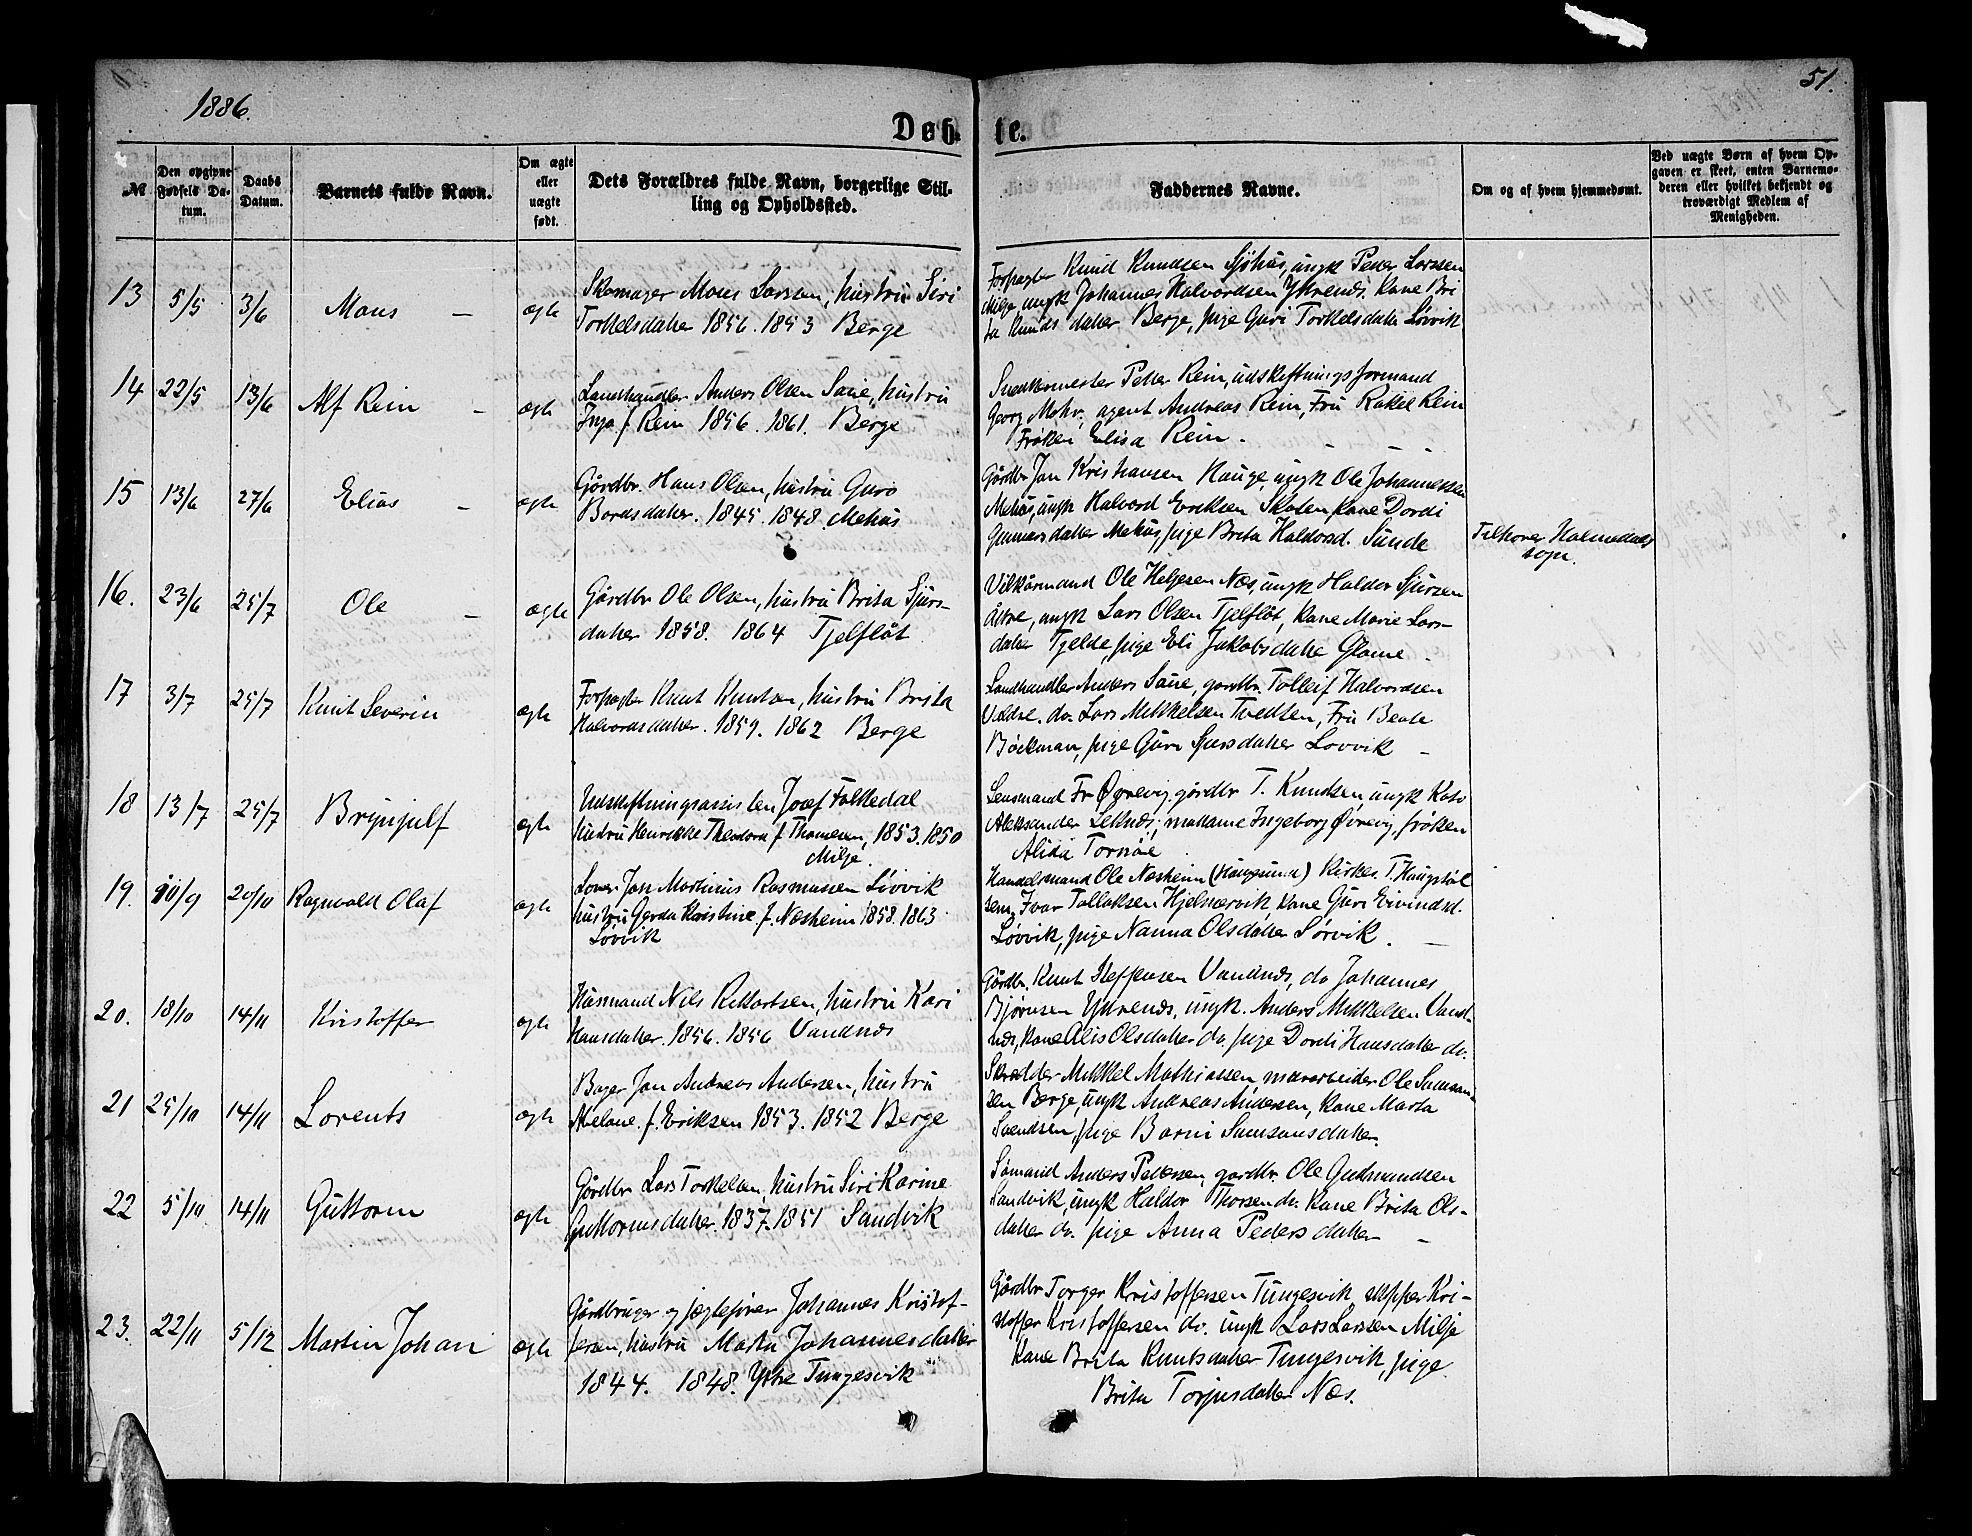 1886.
51.
Døbte.
№
Den opgivne Fødsels Datum.
Daabs Datum.
Barnets fulde Navn.
Om ægte eller uægte født.
Dets Forældres fulde Navn, borgerlige Stilling og Opholdssted.
Faddernes Navne.
Om og af hvem hjemmedøbt.
Ved uægte Børn af hvem Opgaven er skeet, enten Barnemoderen eller hvilket bekjendt og troværdigt Medlem af Menigheden.
13 5/5 3/6 Mons — ægte
Skomager Mons Larssen, hustru Siri
Torkelsdatter 1856. 1853 Berge
Forpagter Knud Knudsen Sjøhus, ungk Peter Larssen
Milje, ungk Johannes Halvordsen Ytrenæs. Kone Bri
ta Knuds datter Berge, pige Guri Torkelsdatter Løvvik
14 22/5 13/6 Alf Rein — ægte
Landhandler Anders Olsen Saue, hustru
Inga f. Rein 1856. 1861. Berge
Snedkermester Peter Rein, udskiftningsformand
Georg Mohr, agent Andreas Rein, Fru Rakel Rein
Frøken Elisa Rein. — — —
15 13/6 27/6 Elias — ægte
Gårdbr. Hans Olsen, hustru Guro
Bårdsdatter. 1845. 1848. Mehus
Gårdbr Jan Kristiansen Hauge, ungk Ole Johannessen
Mehus, ungk Halvord Eriksen Skaten, kone Dordi
Gunnarsdatter Mehus, pige Brita Haldorsd. Sunde
Tilhører Holmedals
sogn.
16. 23/6 25/7 Ole — ægte
Gårdbr Ole Olsen, hustru Brita Sjurs-
datter 1858. 1864 Tjelflåt
Vilkårmand Ole Helgesen Næs, ungk Haldor Sjursen
ungk Lars Olsen Tjelflåt, Kone Marie Lars-
datter Tjelde, pige Eli Jakobsdatter —
17 3/7 25/7 Knut Severin ægte
Forpagter Knut Knutsen, hustru Brita
Halvorsdatter. 1859. 1862 Berge
Landhandler Anders Saue, gårdbr. Tolleif Halvordsen
do. Lars Mikkelsen Tvedten, Fru Beate
Böckman, pige Guri Sjursdatter Løvvik —
18 13/7 25/7 Brynjulf ægte
Udskiftningsassistent Josef Folkedal
hustru Henrikke Theodora f. Thomesen, 1853. 1850
Milje.
Lensmand Fr Øvrevig, gårdbr T. Knudsen, ungk
Aleksander Leknæs, madame Ingeborg Øvrevig, frøken
Alida Tornøe
19. 10/9 20/10 Ragnvald Olaf ægte
Jan Martinus Rasmussen Løvvik
hustru Gerda Kristine f. Næsheim 1858. 1863
Løvvik
Handelsmand Ole Næsheim (Haugesund) Kirkes. T. Haugstøl
sem, Ivar Tollaksen Hjelmervik, kone Guri Eivindsd.
Løvvik, pige Nanna Olsdatter Sørvik. —
20. 18/10 14/11 Kristoffer ægte
Husmand Nils Rikkartsen, hustru Kari
Hansdatter. 1856. 1856 Vandnæs
Gårdbr. Knut Steffensen Vandnæs, do Johannes
Bjørnsen Ytrenæs, ungk. Anders Mikkelsen Vand-
næs, kone Alis Olsdatter do. pige Dordi Hansdatter do.
21 25/10 14/11 Lorents ægte
Bager Jan Andreas Andersen, hustru
f. Eriksen 1853. 1852 Berge
Skrædder Mikkel Mathiassen, murarbeider Ole Samson-
sen Berge, ungk Andreas Andersen, Kone Marta
Svendsen, pige Barni Samsonsdatter.
22 5/10 14/11 Guttorm ægte
Gårdbr Lars Torkelsen, hustru Siri Karine
Guttormsdatter 1837. 1851 Sandvik
Sømand Anders Pedersen, gårdbr. Ole Gudmundsen
Sandvik, ungk Haldor Thorsen do. Kone Brita Ols-
datter do. pige Anna Pedersdatter —
23. 22/11 5/12 Martin Johan ægte
Gårdbruger og jægtefører Johannes Kristof-
fersen, hustru Marta Johannesdatter
1844. 1848. Ytre Tungesvik
Gårdbr Torger Kristoffersen Tungesvik skipper Kri-
stoffer Kristoffersen do. ungk Lars Larssen Milje
Kone Brita Knutsdatter Tungesvik, pige
Brita Torjusdatter Næs.